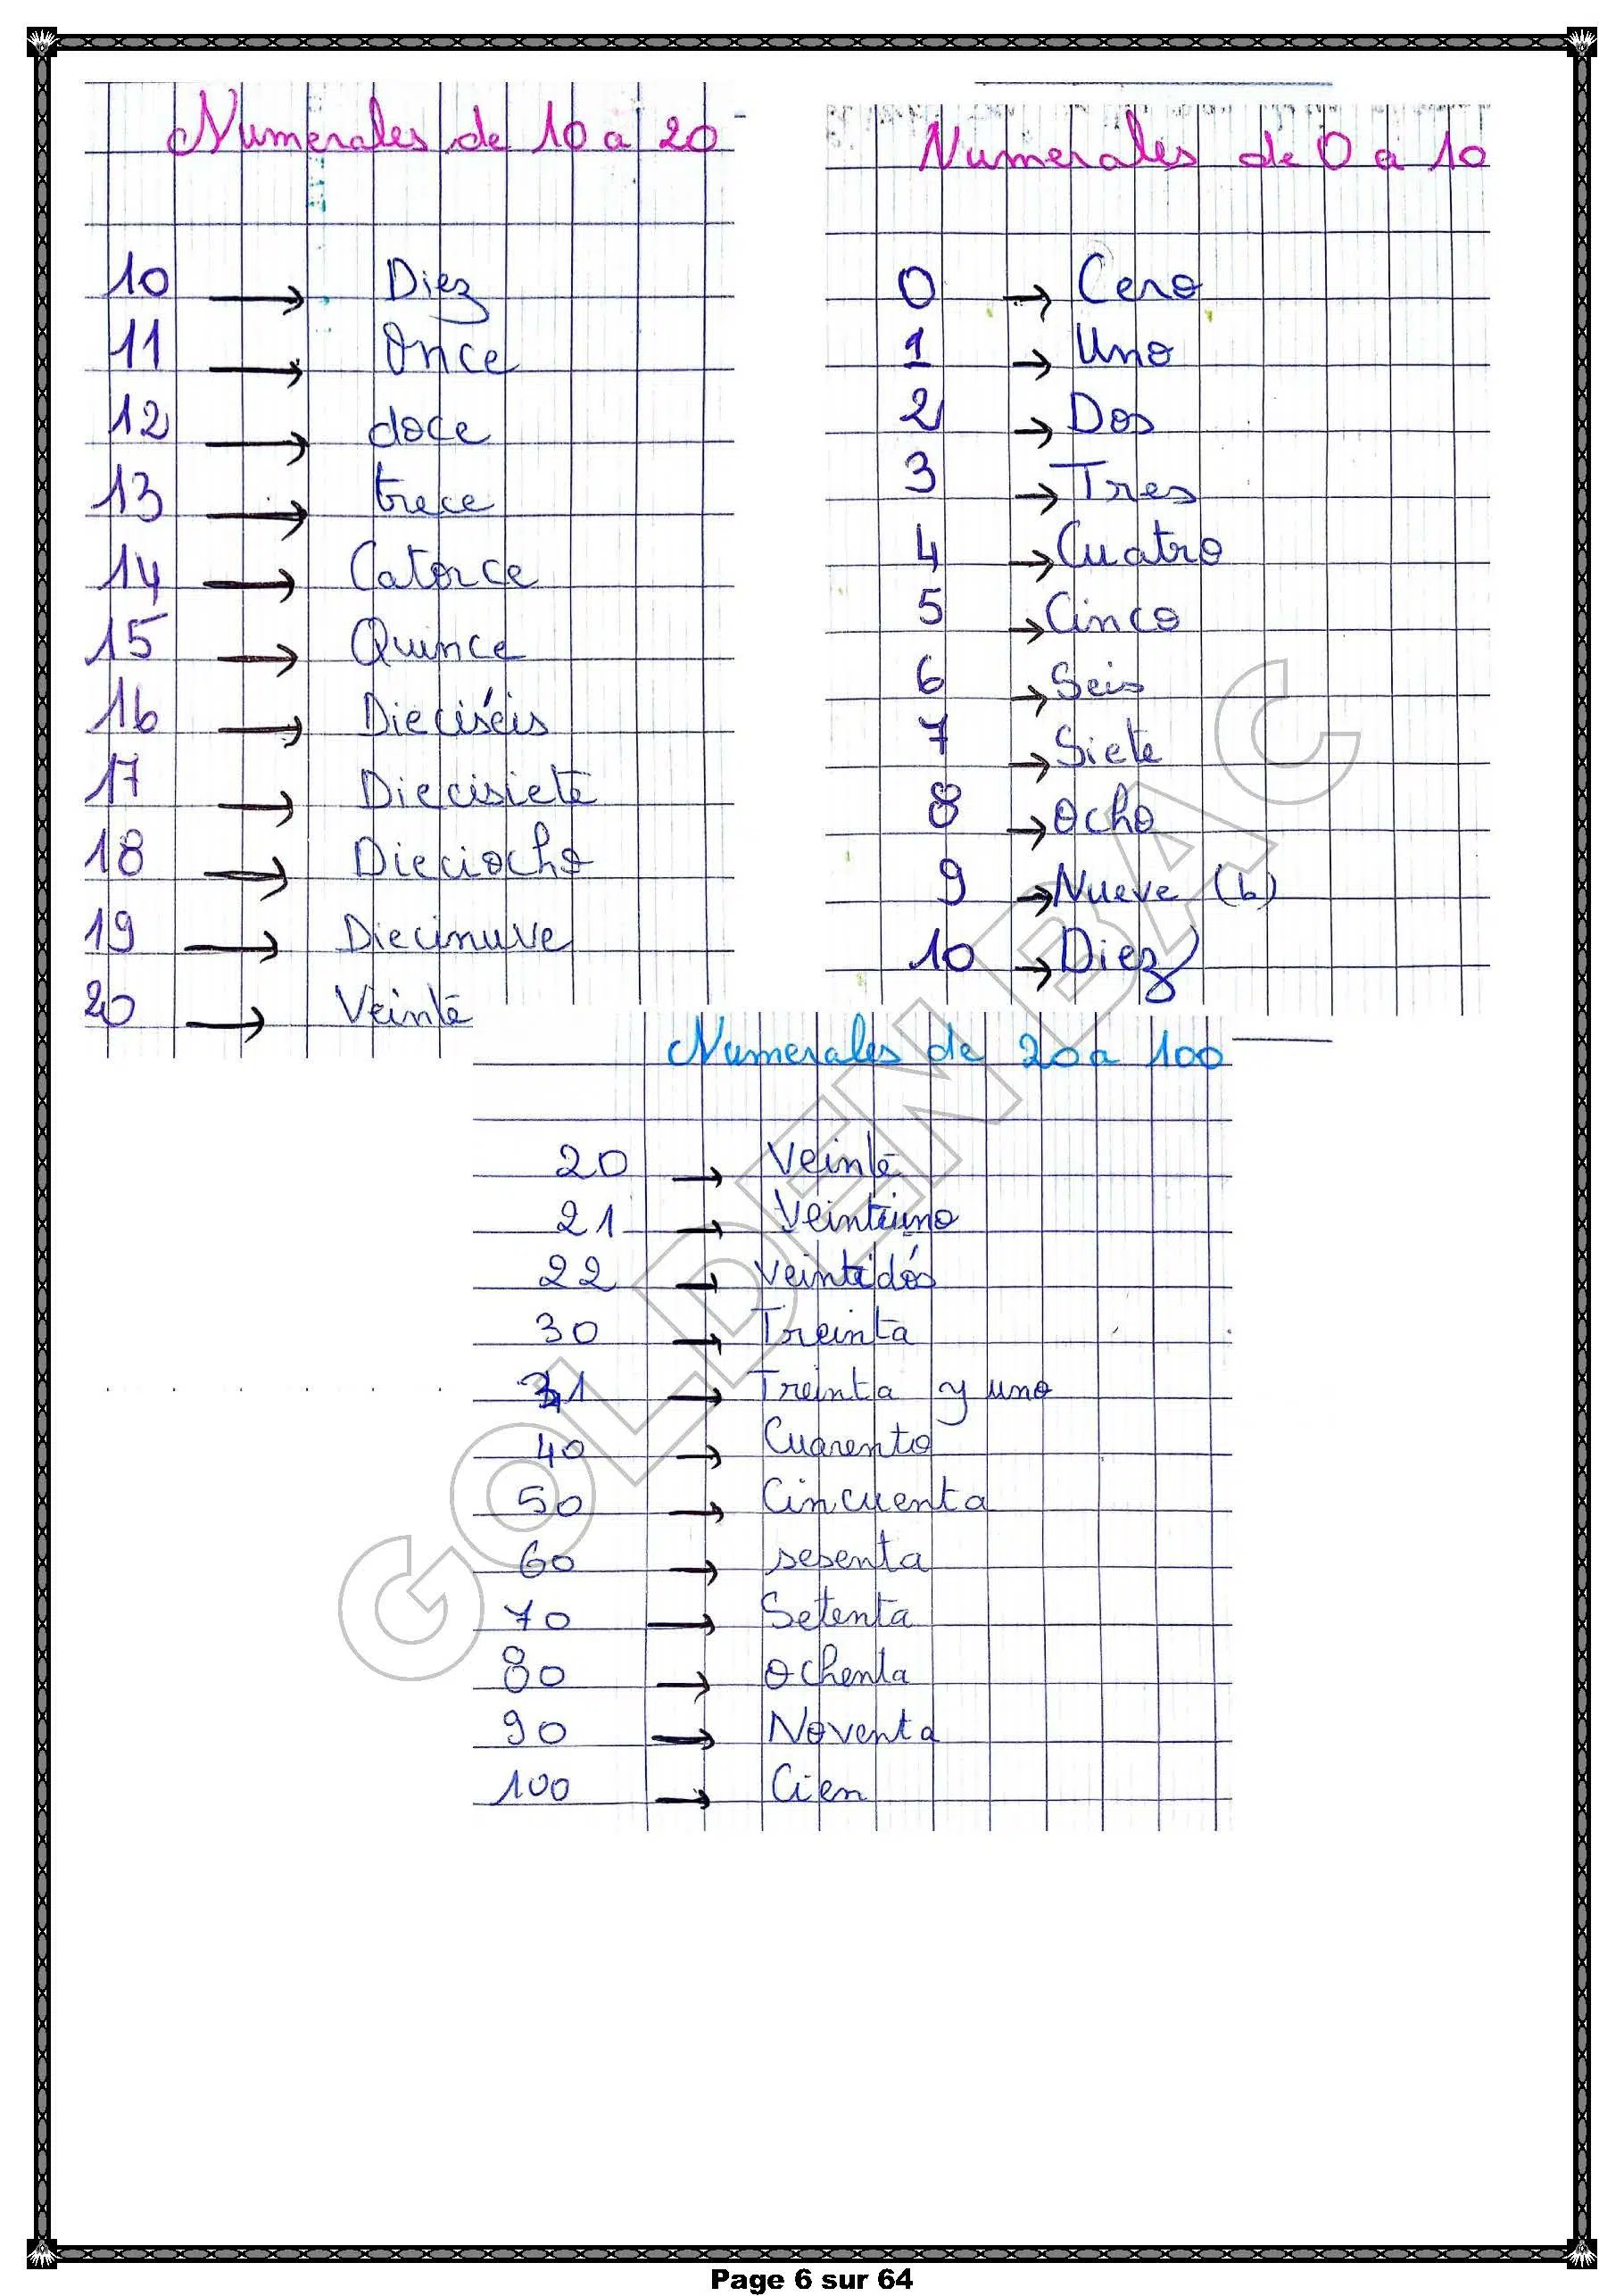 Numerales de 10 a 20
10 → Diez
11 → Once
12 → doce
13 → trece
14 → Catorce
15 → Quince
16 → Dieciséis
17 → Diecisiete
18 → Dieciocho
19 → Diecinuve
20 → Veinte
Numerales de 0 a 10
0 → Cero
1 → Uno
2 → Dos
3 → Tres
4 → Cuatro
5 → Cinco
6 → Seis
7 → Siete
8 → Ocho
9 → Nueve (b)
10 → Diez
Numerales de 20 a 100
20 → Veinte
21 → Veintiuno
22 → Veintidós
30 → Treinta
31 → Treinta y uno
40 → Cuarenta
50 → Cincuenta
60 → sesenta
70 → Setenta
80 → Ochenta
90 → Noventa
100 → Cien
GOLDEN BAC
Page 6 sur 64